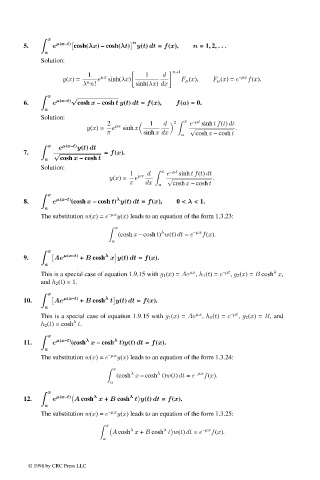 5. ∫ₐˣ e^{μ(x−t)} [cosh(λx) − cosh(λt)]ⁿ y(t) dt = f(x), n = 1, 2, . . .
Solution:
y(x) = \frac{1}{λⁿn!} e^{μx} sinh(λx) [\frac{1}{sinh(λx)} \frac{d}{dx}]^{n+1} F_μ(x), F_μ(x) = e^{−μx} f(x).
6. ∫ₐˣ e^{μ(x−t)} √(cosh x − cosh t) y(t) dt = f(x), f(a) = 0.
Solution:
y(x) = \frac{2}{π} e^{μx} sinh x (\frac{1}{sinh x} \frac{d}{dx})² ∫ₐˣ \frac{e^{−μt} sinh t f(t) dt}{√(cosh x − cosh t)}.
7. ∫ₐˣ \frac{e^{μ(x−t)} y(t) dt}{√(cosh x − cosh t)} = f(x).
Solution:
y(x) = \frac{1}{π} e^{μx} \frac{d}{dx} ∫ₐˣ \frac{e^{−μt} sinh t f(t) dt}{√(cosh x − cosh t)}
8. ∫ₐˣ e^{μ(x−t)} (cosh x − cosh t)^λ y(t) dt = f(x), 0 < λ < 1.
The substitution w(x) = e^{−μx} y(x) leads to an equation of the form 1.3.23:
∫ₐˣ (cosh x − cosh t)^λ w(t) dt = e^{−μx} f(x).
9. ∫ₐˣ [Ae^{μ(x−t)} + B cosh^λ x] y(t) dt = f(x).
This is a special case of equation 1.9.15 with g₁(x) = Ae^{μx}, h₁(t) = e^{−μt}, g₂(x) = B cosh^λ x,
and h₂(t) = 1.
10. ∫ₐˣ [Ae^{μ(x−t)} + B cosh^λ t] y(t) dt = f(x).
This is a special case of equation 1.9.15 with g₁(x) = Ae^{μx}, h₁(t) = e^{−μt}, g₂(x) = B, and
h₂(t) = cosh^λ t.
11. ∫ₐˣ e^{μ(x−t)} (cosh^λ x − cosh^λ t) y(t) dt = f(x).
The substitution w(x) = e^{−μx} y(x) leads to an equation of the form 1.3.24:
∫ₐˣ (cosh^λ x − cosh^λ t) w(t) dt = e^{−μx} f(x).
12. ∫ₐˣ e^{μ(x−t)} (A cosh^λ x + B cosh^λ t) y(t) dt = f(x).
The substitution w(x) = e^{−μx} y(x) leads to an equation of the form 1.3.25:
∫ₐˣ (A cosh^λ x + B cosh^λ t) w(t) dt = e^{−μx} f(x).
© 1998 by CRC Press LLC